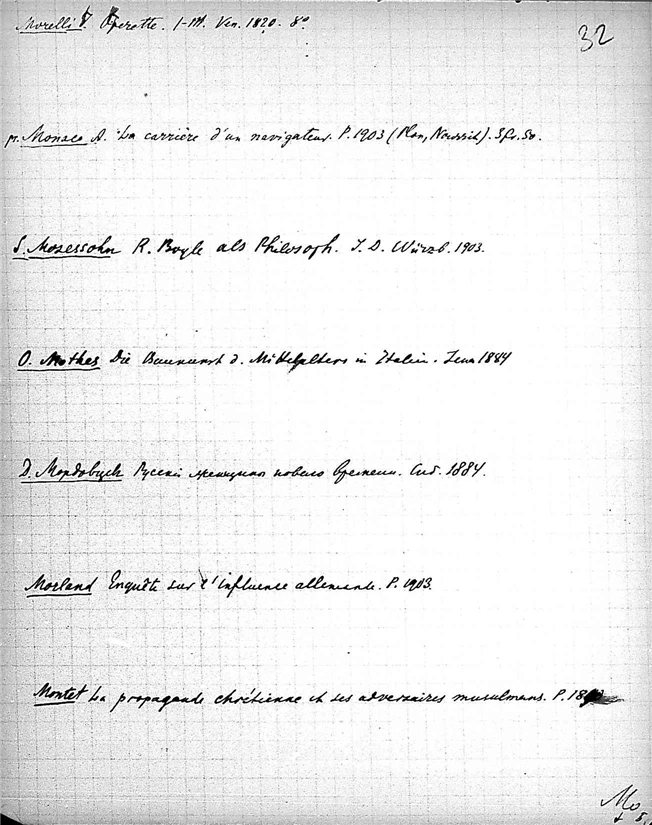 Morelli J. Operette. I-III. Ven. 1820. 8°
32
pr. Monaco A. La carrière d'un navigateur. P. 1903 (Plon, Nourrit). 3fr. 50.
S. Mosessohn R. Boyle als Philosoph. I. D. Würzb. 1903.
O. Mothes Die Baukunst d. Mittelalters in Italien. Jena 1884
Д. Мордовцев Русскія женщины новаго времени. Спб. 1884.
Morland Enquête sur l'influence allemande. P. 1903.
Montet La propagande chrétienne et ses adversaires musulmans. P. 18
Mo